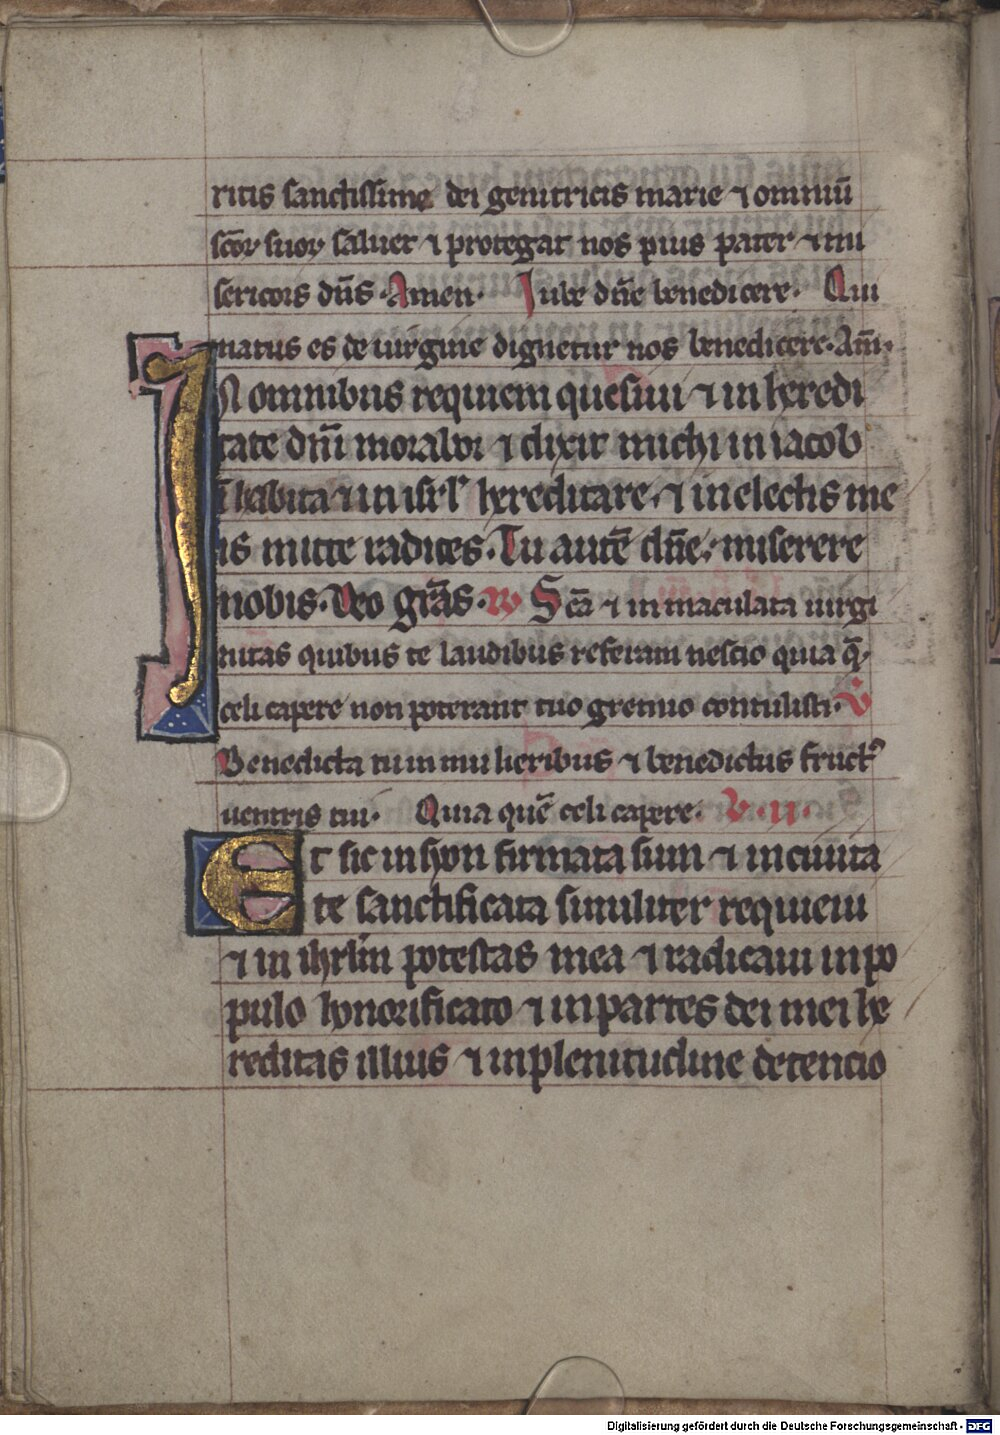 ritis sanctissime dei genitricis marie ⁊ omniū
scōꝝ suoꝝ saluet ⁊ protegat nos pius pater ⁊ mi
sericors dn̄s. Amen. Iube dn̄e benedicere. Qui
natus es de uirgine dignetur nos benedicere. Am̄.
IN omnibus requiem quesiui ⁊ in heredi
tate dn̄i morabor ⁊ dixit michi in iacob
īhabita ⁊ in isrl' hereditare. ⁊ in electis me
is mitte radices. Tu autē dn̄e. miserere
nobis. Deo grās. Scā ⁊ inmaculata uirgi
nitas quibus te laudibus referam nescio quia q̄
celi capere non poterant tuo gremio contulisti. V
Benedicta tu in mulieribus ⁊ benedictus fruct᾽
uentris tui. Quia quē celi capere. V. II.
Et sic in syon firmata sum ⁊ in ciuita
te sanctificata similiter requieui
⁊ in ihrlm̄ potestas mea ⁊ radicaui in po
pulo honorificato ⁊ in partes dei mei he
reditas illius ⁊ in plenitudine detencio
Digitalisierung gefördert durch die Deutsche Forschungsgemeinschaft - DFG